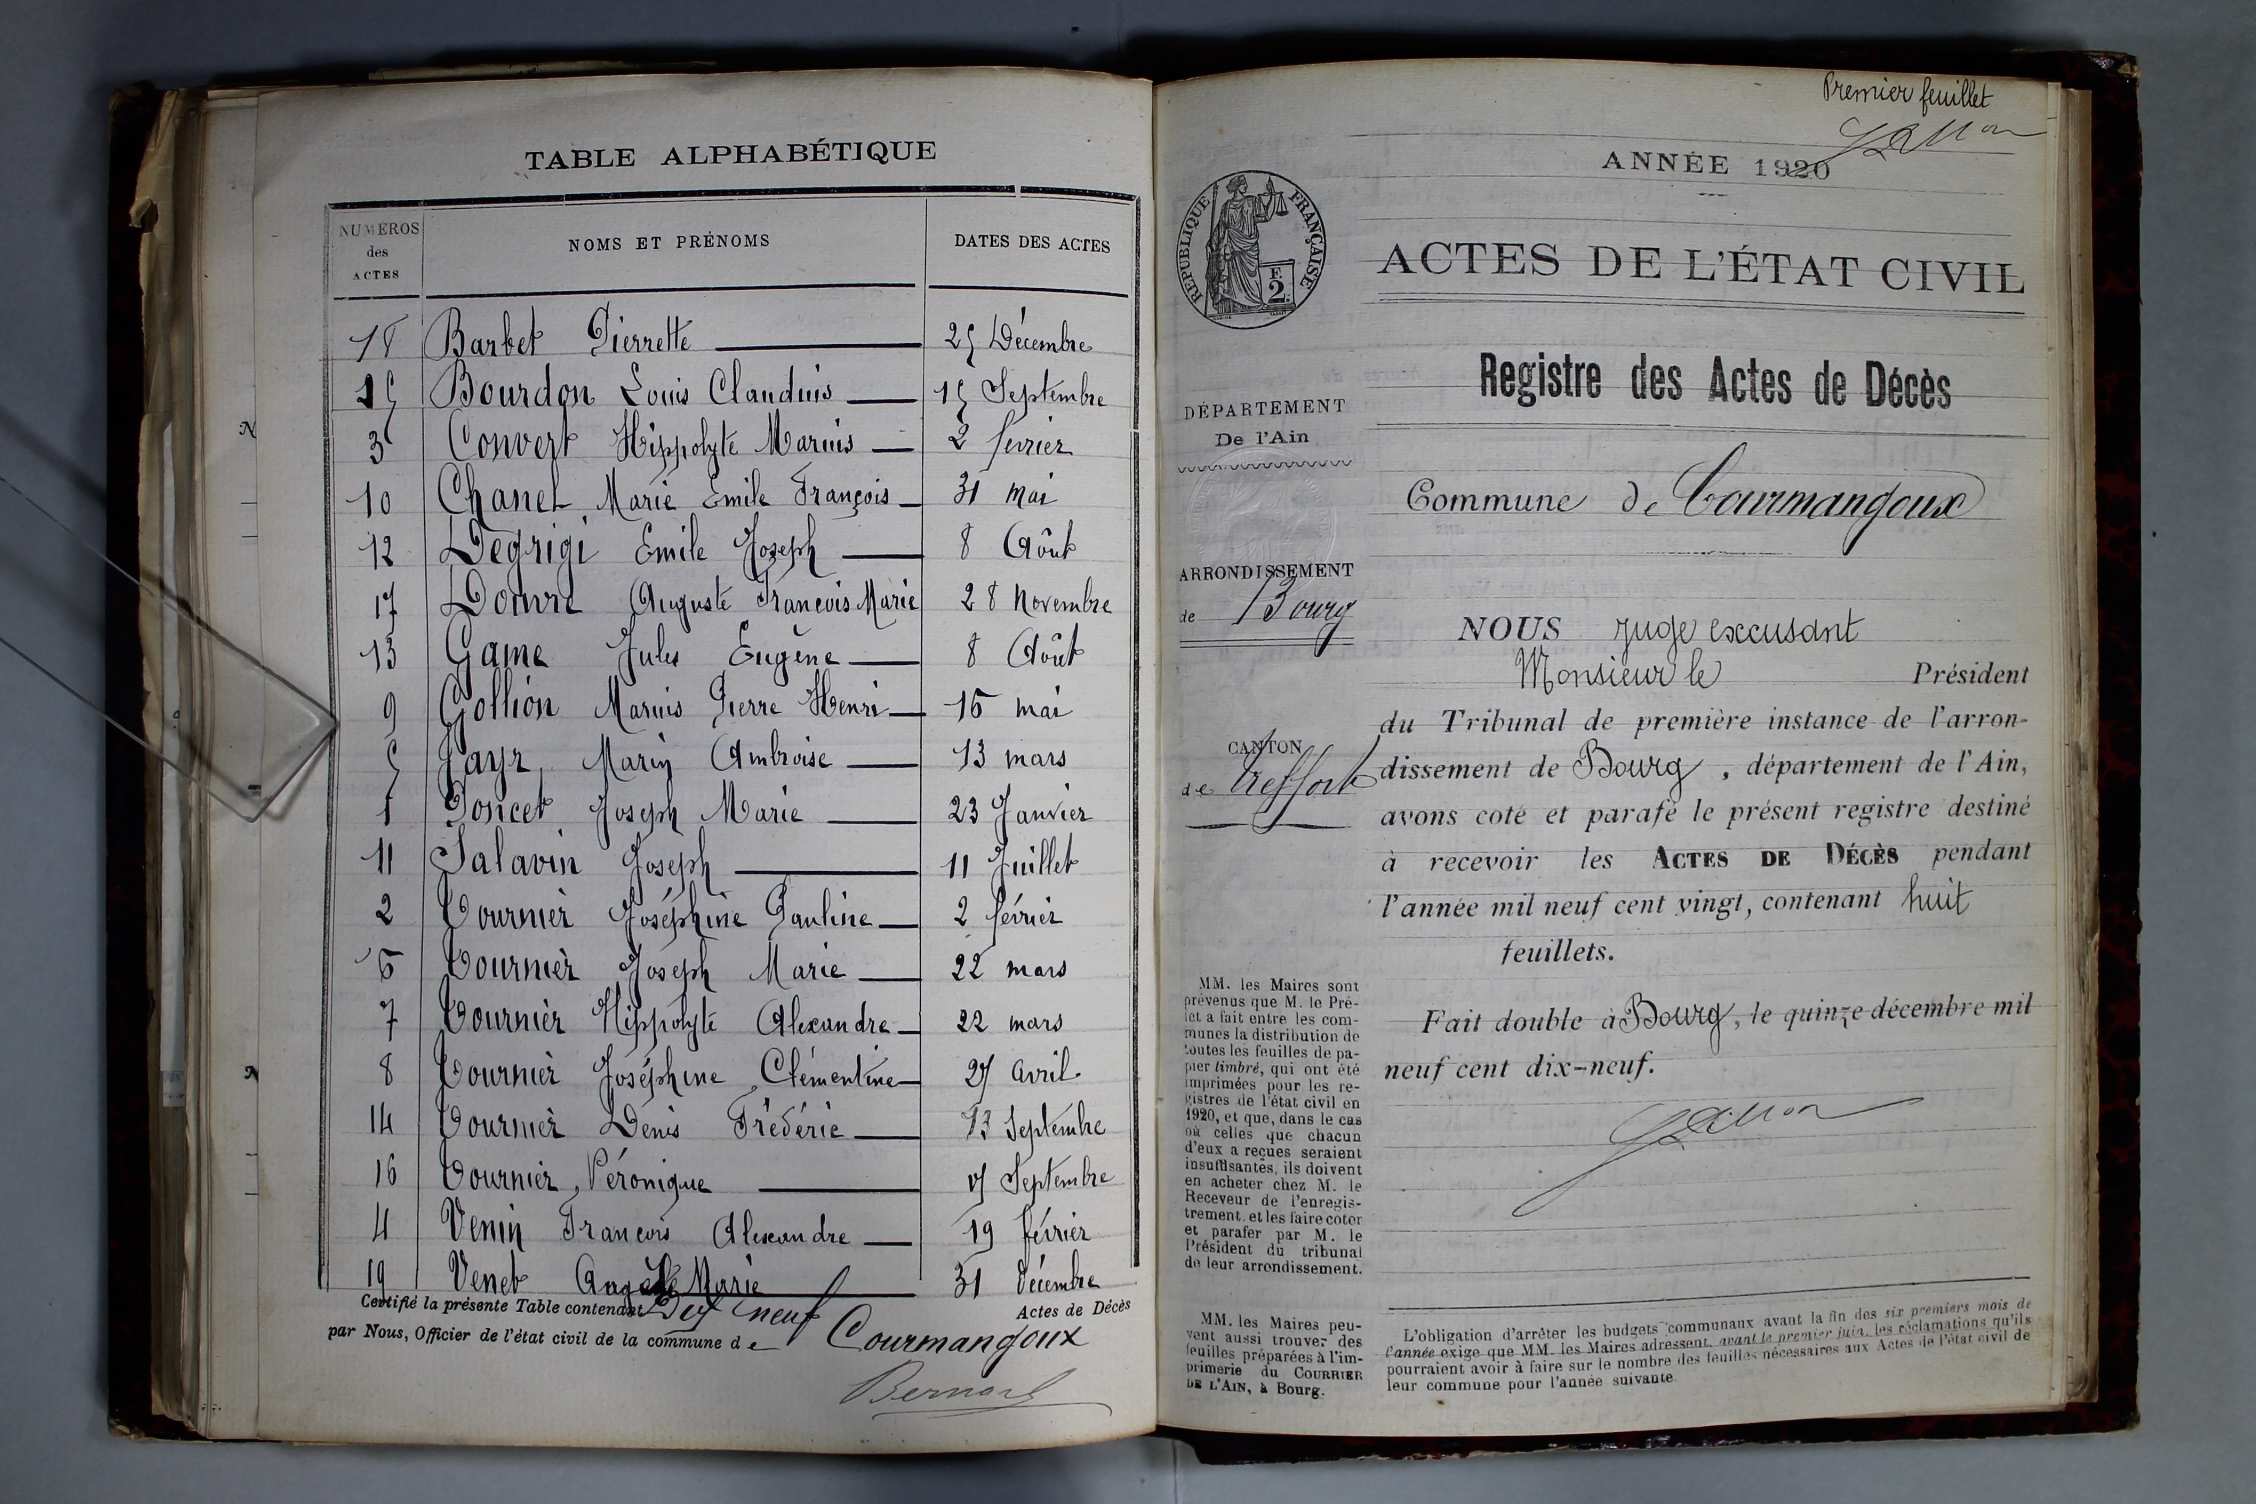 TABLE ALPHABÉTIQUE
NUMÉROS des ACTES NOMS ET PRÉNOMS DATES DES ACTES
18 Barbet Pierrette 25 Décembre
15 Bourdon Louis Claudius 15 Septembre
3 Convert Hippolyte Marius 2 février
10 Chanel Marie Emile François 31 mai
12 Degrigi Emile Joseph 8 Août
17 Douvre Auguste François Marie 28 Novembre
13 Game Jules Eugène 8 Août
9 Gollion Marius Pierre Henri 16 mai
5 Jayr Marin Ambroise 13 mars
1 Poncet Joseph Marie 23 Janvier
11 Salavin Joseph 11 Juillet
2 Tournier Joséphine Pauline 2 février
6 Tournier Joseph Marie 22 mars
7 Tournier Hippolyte Alexandre 22 mars
8 Tournier Joséphine Clémentine 27 avril
14 Tournier Denis Frédéric 13 Septembre
16 Tournier Véronique 17 Septembre
4 Venin François Alexandre 19 février
19 Venet Angèle Marie 31 décembre
Certifié la présente Table contenant Dix neuf Actes de Décès
par Nous, Officier de l'état civil de la commune de Courmangoux
Bernard
Premier feuillet
ANNÉE 1920
RÉPUBLIQUE FRANÇAISE
F.
2
ACTES DE L'ÉTAT CIVIL
Registre des Actes de Décès
DÉPARTEMENT
De l'Ain
Commune de Courmangoux
ARRONDISSEMENT
de Bourg
CANTON
de Treffort
NOUS juge excusant
Monsieur le Président
du Tribunal de première instance de l'arron-
dissement de Bourg, département de l'Ain,
avons coté et parafé le présent registre destiné
à recevoir les ACTES DE DÉCÈS pendant
l'année mil neuf cent vingt, contenant huit
feuillets.
Fait double à Bourg, le quinze décembre mil
neuf cent dix-neuf.
MM. les Maires sont
prévenus que M. le Pré-
fet a fait entre les com-
munes la distribution de
toutes les feuilles de pa-
pier timbré, qui ont été
imprimées pour les re-
gistres de l'état civil en
1920, et que, dans le cas
où celles que chacun
d'eux a reçues seraient
insuffisantes, ils doivent
en acheter chez M. le
Receveur de l'enregis-
trement, et les faire coter
et parafer par M. le
Président du tribunal
de leur arrondissement.
MM. les Maires peu-
vent aussi trouver des
feuilles préparées à l'im-
primerie du COURRIER
DE L'AIN, à Bourg.
L'obligation d'arrêter les budgets communaux avant la fin des six premiers mois de
l'année exige que MM. les Maires adressent, avant le premier juin, les réclamations qu'ils
pourraient avoir à faire sur le nombre des feuilles nécessaires aux Actes de l'état civil de
leur commune pour l'année suivante.